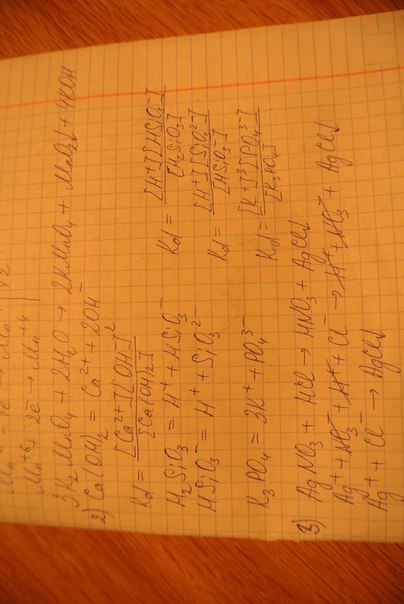 Mn⁺⁶ + 2e⁻ → Mn⁺⁴ | 
3K₂MnO₄ + 2H₂O → 2KMnO₄ + MnO₂↓ + 4KOH
2) Ca(OH)₂ = Ca²⁺ + 2OH⁻
Kd = [Ca²⁺][OH⁻]² / [Ca(OH)₂]
H₂SiO₃ = H⁺ + HSiO₃⁻ Kd = [H⁺][HSiO₃⁻] / [H₂SiO₃]
HSiO₃⁻ = H⁺ + SiO₃²⁻ Kd = [H⁺][SiO₃²⁻] / [HSiO₃⁻]
K₃PO₄ = 3K⁺ + PO₄³⁻ Kd = [K⁺]³[PO₄³⁻] / [K₃PO₄]
3) AgNO₃ + HCl → HNO₃ + AgCl↓
Ag⁺ + NO₃⁻ + H⁺ + Cl⁻ → H⁺ + NO₃⁻ + AgCl↓
Ag⁺ + Cl⁻ → AgCl↓